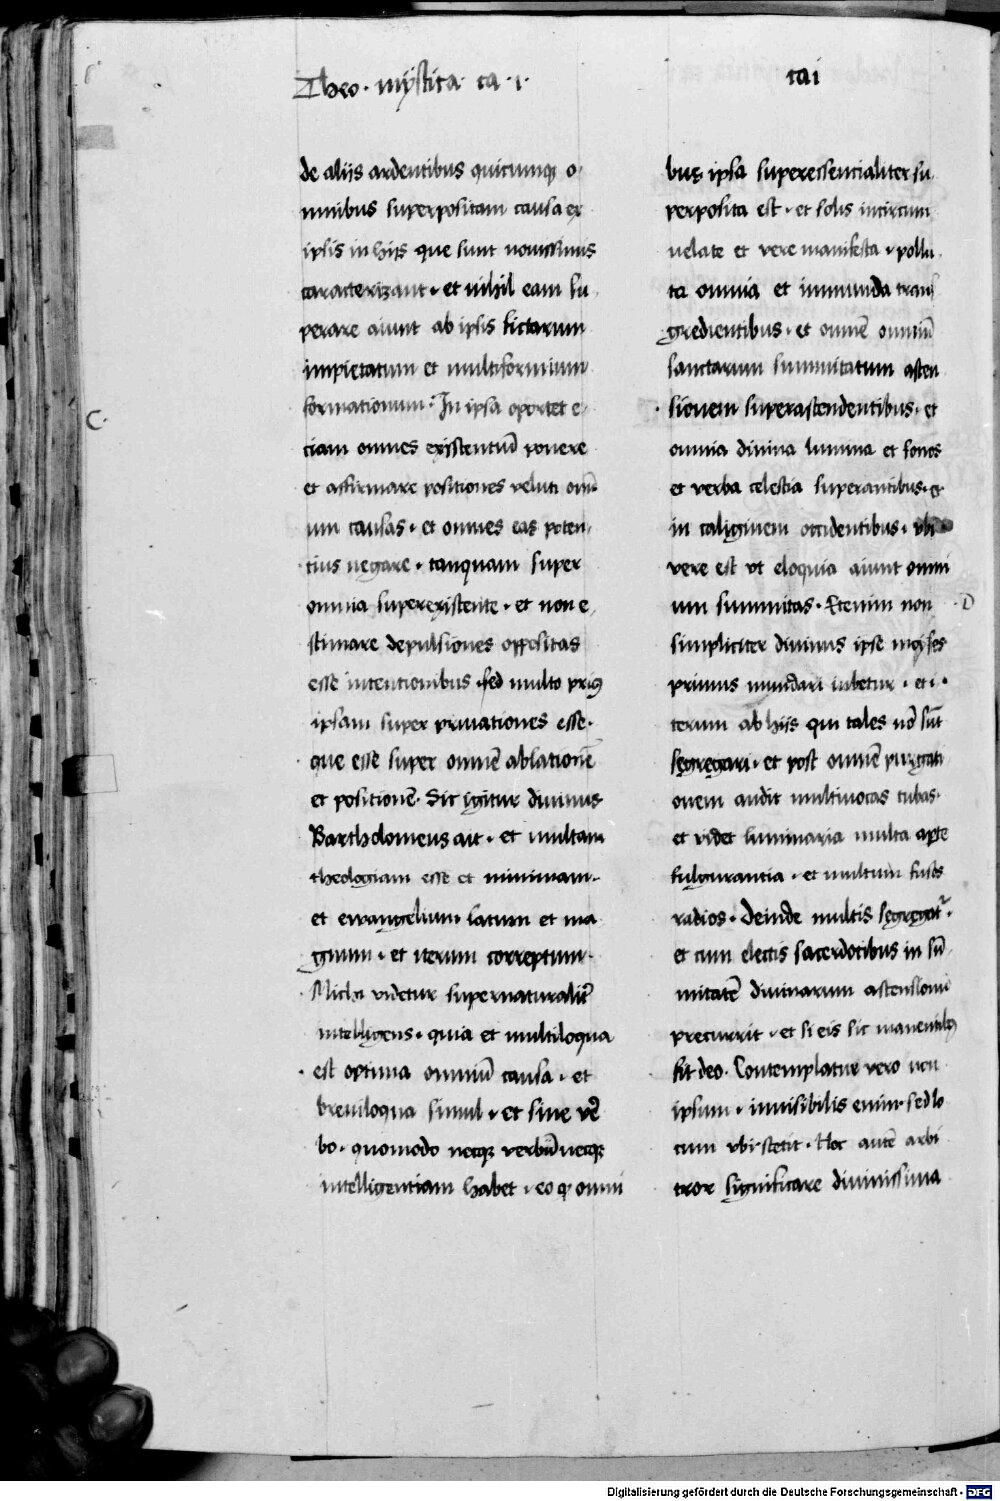 Theo· mÿstica ca·1·
cai
de aliis ardentibus quicumqꝫ o-
mnibus superpositam causa ex
ipsis in hijs que sunt nouissimis
caracterizant· et nihil eam su-
perare aiunt ab ipsis fictarum
impietatum et multiformium
formationum· In ipsa oportet e-
C·
ciam omnes existentiū ponere
et affirmare positiones veluti om̄i-
um causas· et omnes eas poten-
tius negare· tanquam super
omnia superexistente· et non e-
stimare depulsiones oppositas
esse intentionibus· sed multo priꝰ
ipsam super priuationes esse·
que esse super omnē ablationē
et positionē· Sic igitur diuinus
Bartholomeus ait· et multam
theologiam esse et minimam·
et ewangelium latum et ma
gnum· et iterum correptum·
Michi videtur supernaturalit̄
intelligens· quia et multiloqua
est optima omniū causa· et
breuiloqua simul· et sine ve̅
bo· quomodo necqꝫ verbū necqꝫ
intelligentiam habet· eo qꝫ omni
bus ipsa superessencialiter su-
perposita est· et solis incircum
uelate et vere manifesta· pollu-
ta omnia et immunda trans
gredientibus· et omnē omniū
sanctarum summitatum ascen
sionem superascendentibus· et
omnia diuina lumina et sonos
et verba celestia superantibus· et
in caliginem occidentibus· vbi
vere est vt eloquia aiunt omni
um summitas· Etenim non
D
simpliciter diuinus ipse moÿses
primus mundari iubetur· et i-
terum ab hijs qui tales nō sūt
segregari· et post omnē purgati
onem audit multiuocas tubas·
et videt luminaria multa apte
fulgurantia· et multum fusos
radios· Deinde multis segregat᷑·
et cum electis sacerdotibus in sū-
mitatē diuinarum ascensionū
precurrit· et si eis sic manentibꝰ
fit deo· Contemplatur vero non
ipsum· inuisibilis enim· sed lo
cum vbi stetit· Hoc autē arbi
tror significare diuinissima
Digitalisierung gefördert durch die Deutsche Forschungsgemeinschaft - DFG